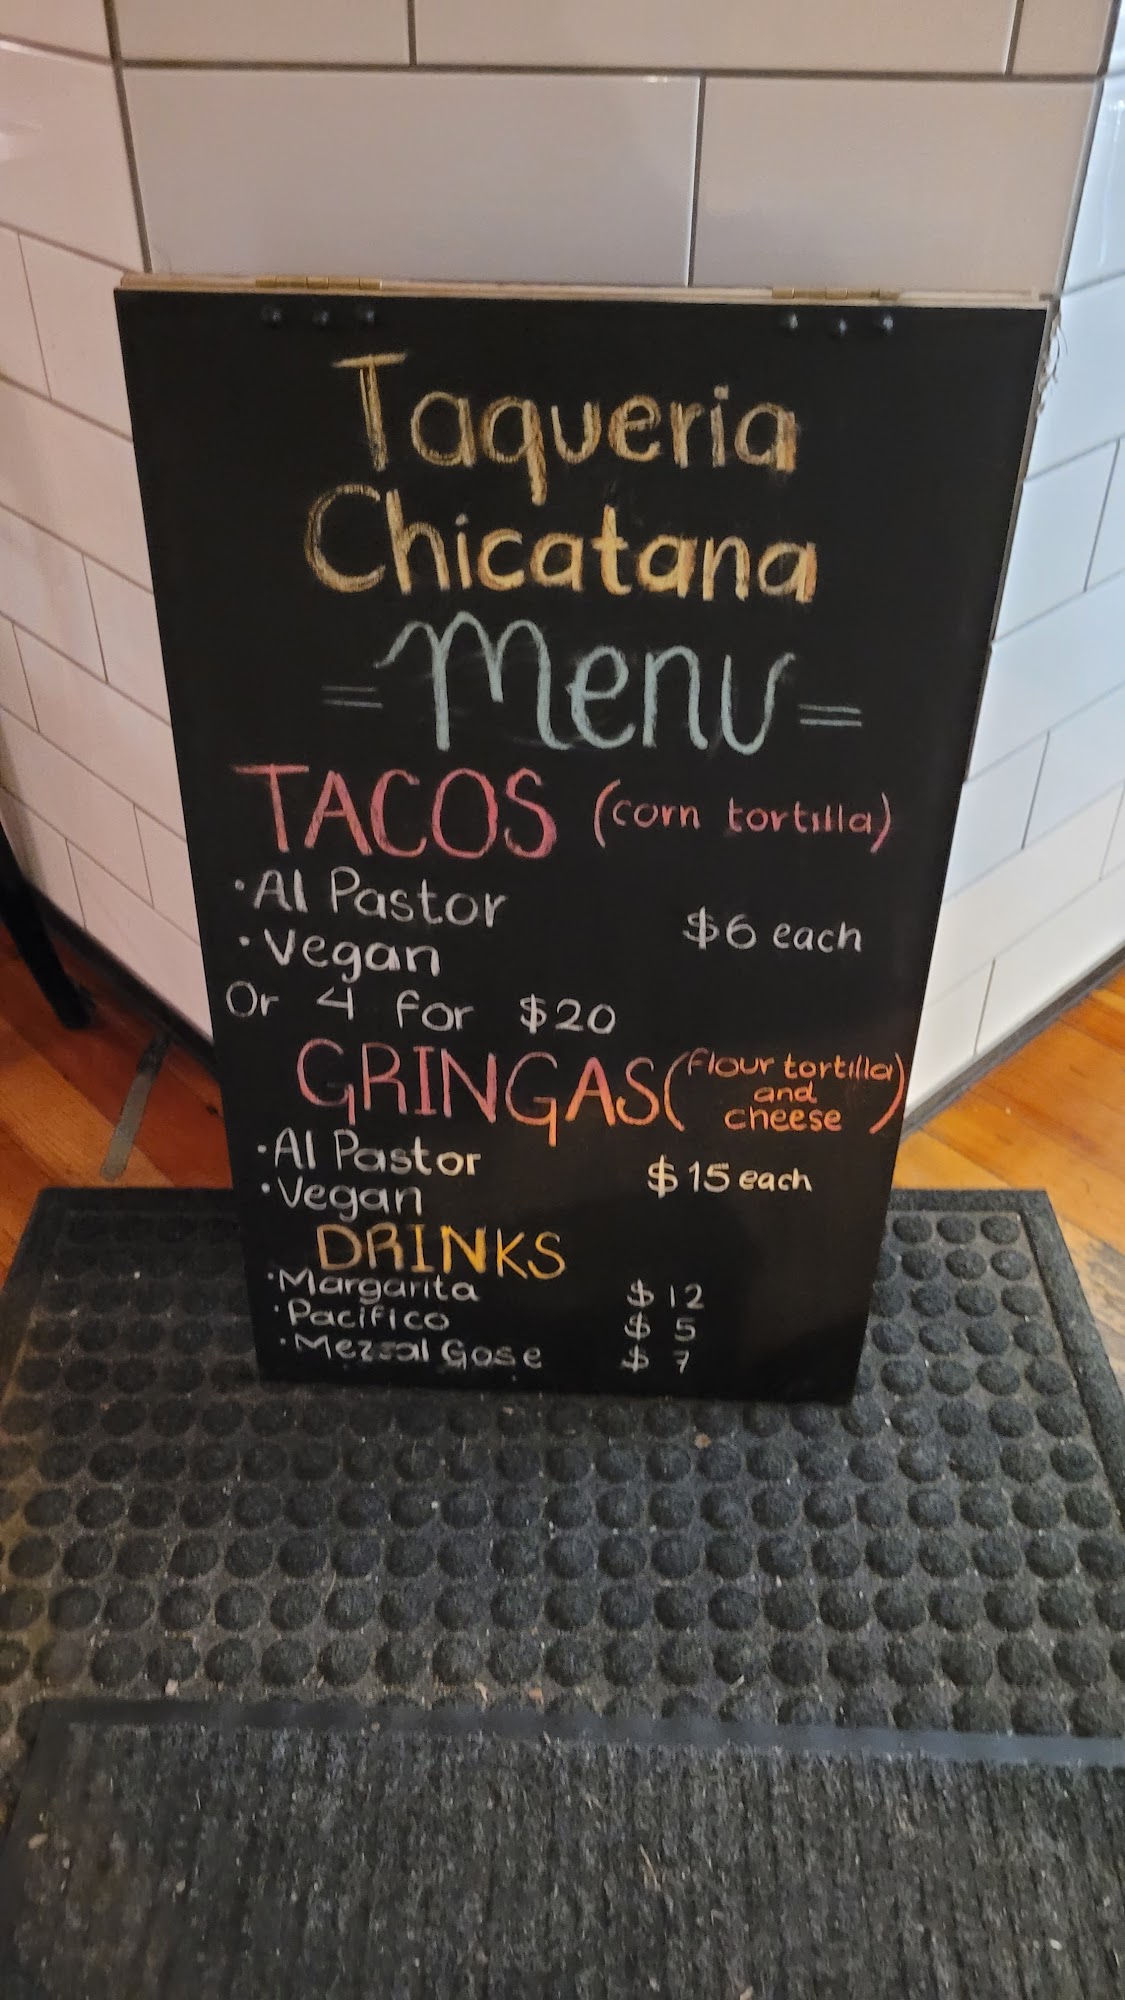 Taqueria
Chicatana
= Menu =
TACOS (corn tortilla)
• Al Pastor
$6 each
• Vegan
Or 4 for $20
GRINGAS (flour tortilla and cheese)
• Al Pastor
$15 each
• Vegan
DRINKS
• Margarita $12
• Pacifico $5
• Mezcal Gose $7